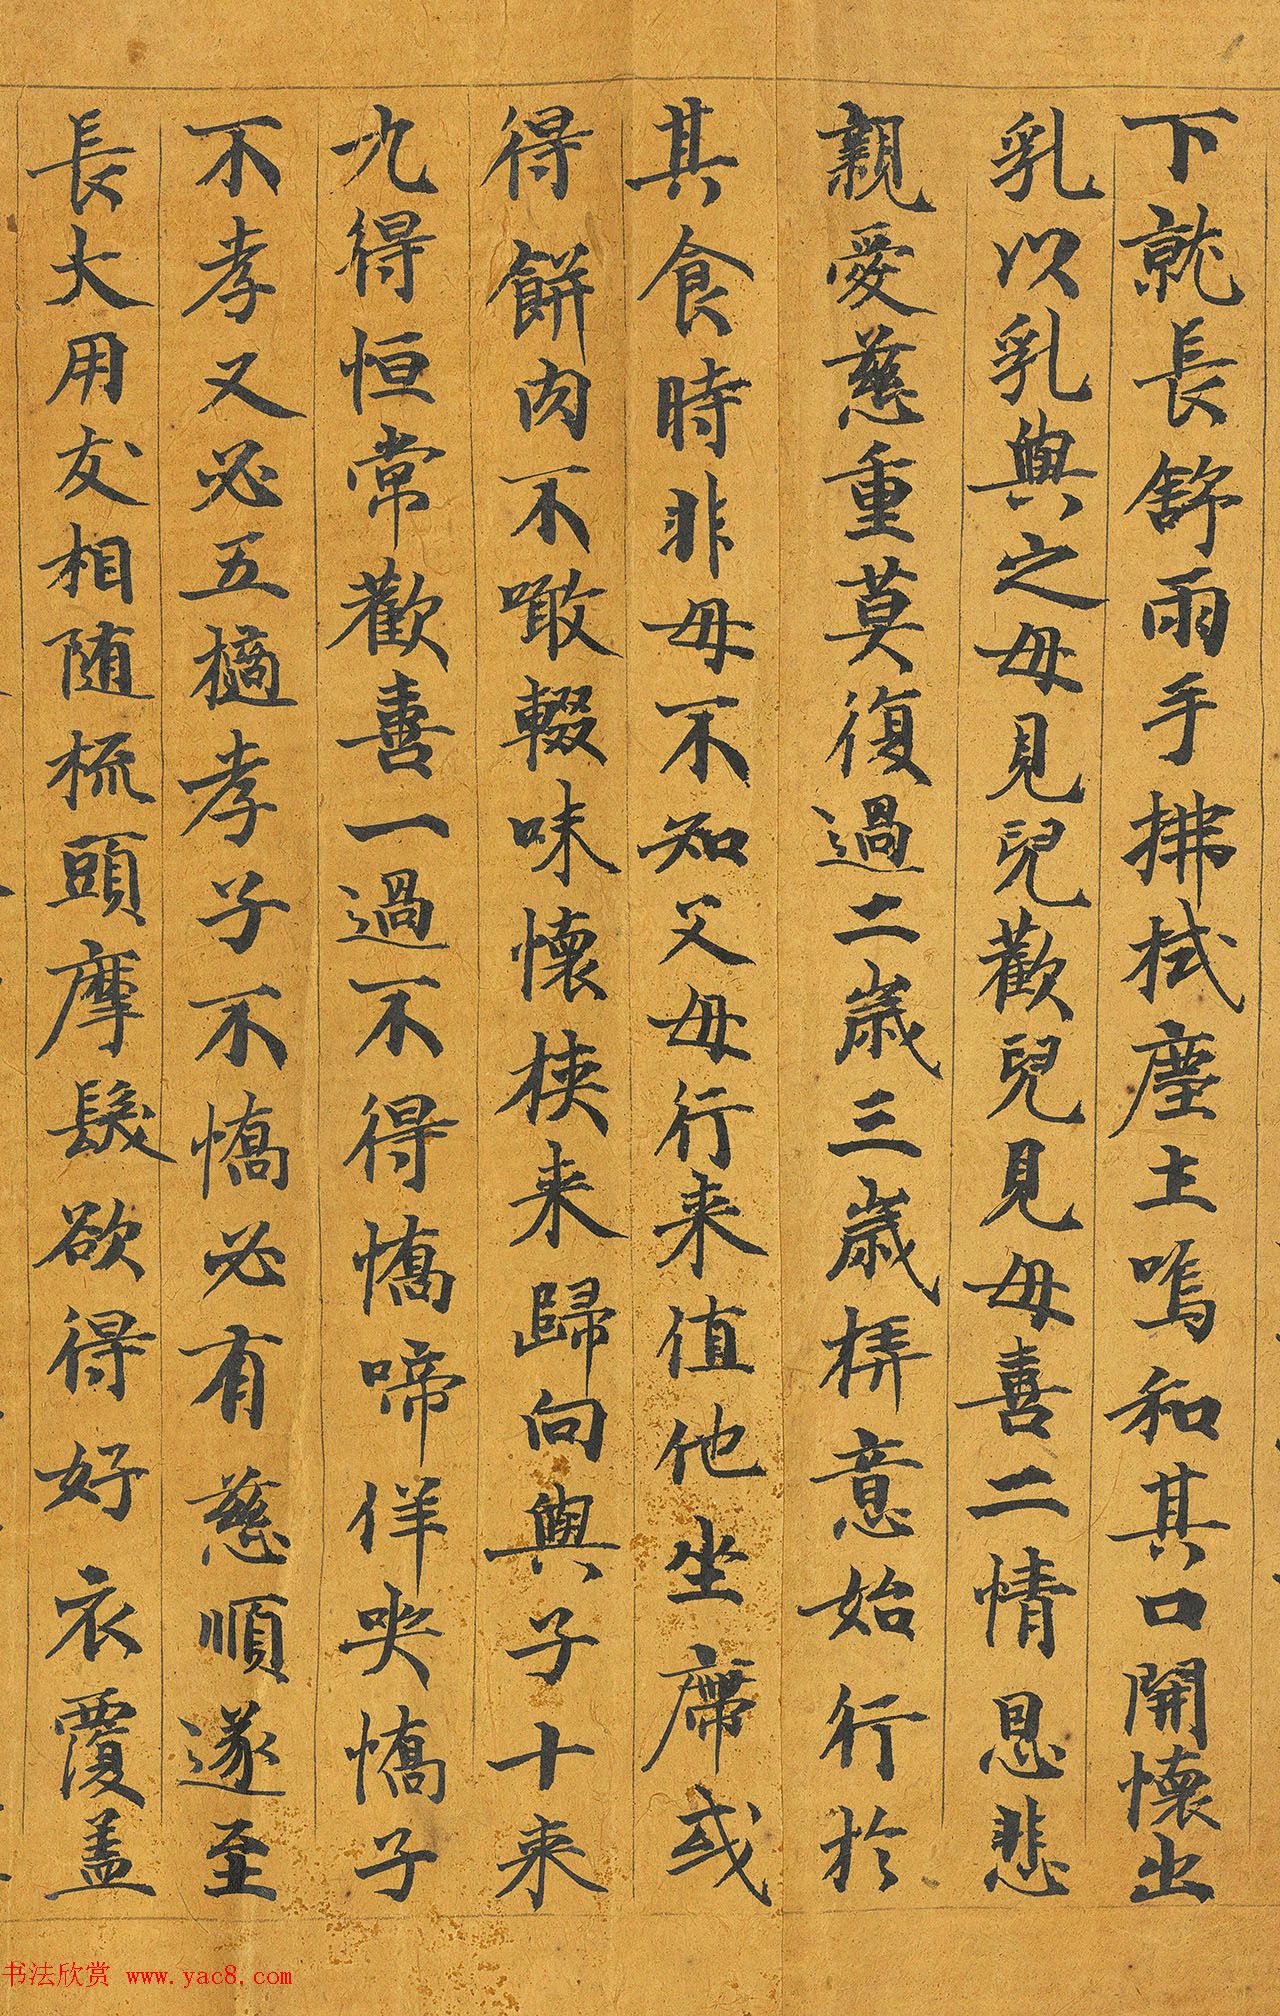 下就長舒兩手拂拭塵土嗚和其口開懷出
乳以乳與之母見兒歡兒見母喜二情恩悲
親愛慈重莫復過二歲三歲弄意始行於
其食時非母不知父母行来值他坐席或
得餅肉不噉輟味懷挾来歸向與子十来
九得恒常歡喜一過不得憍啼佯哭憍子
不孝又必五擿孝子不憍必有慈順遂至
長大朋友相随梳頭摩髮欲得好衣覆盖
书法欣赏 www.yac8.com